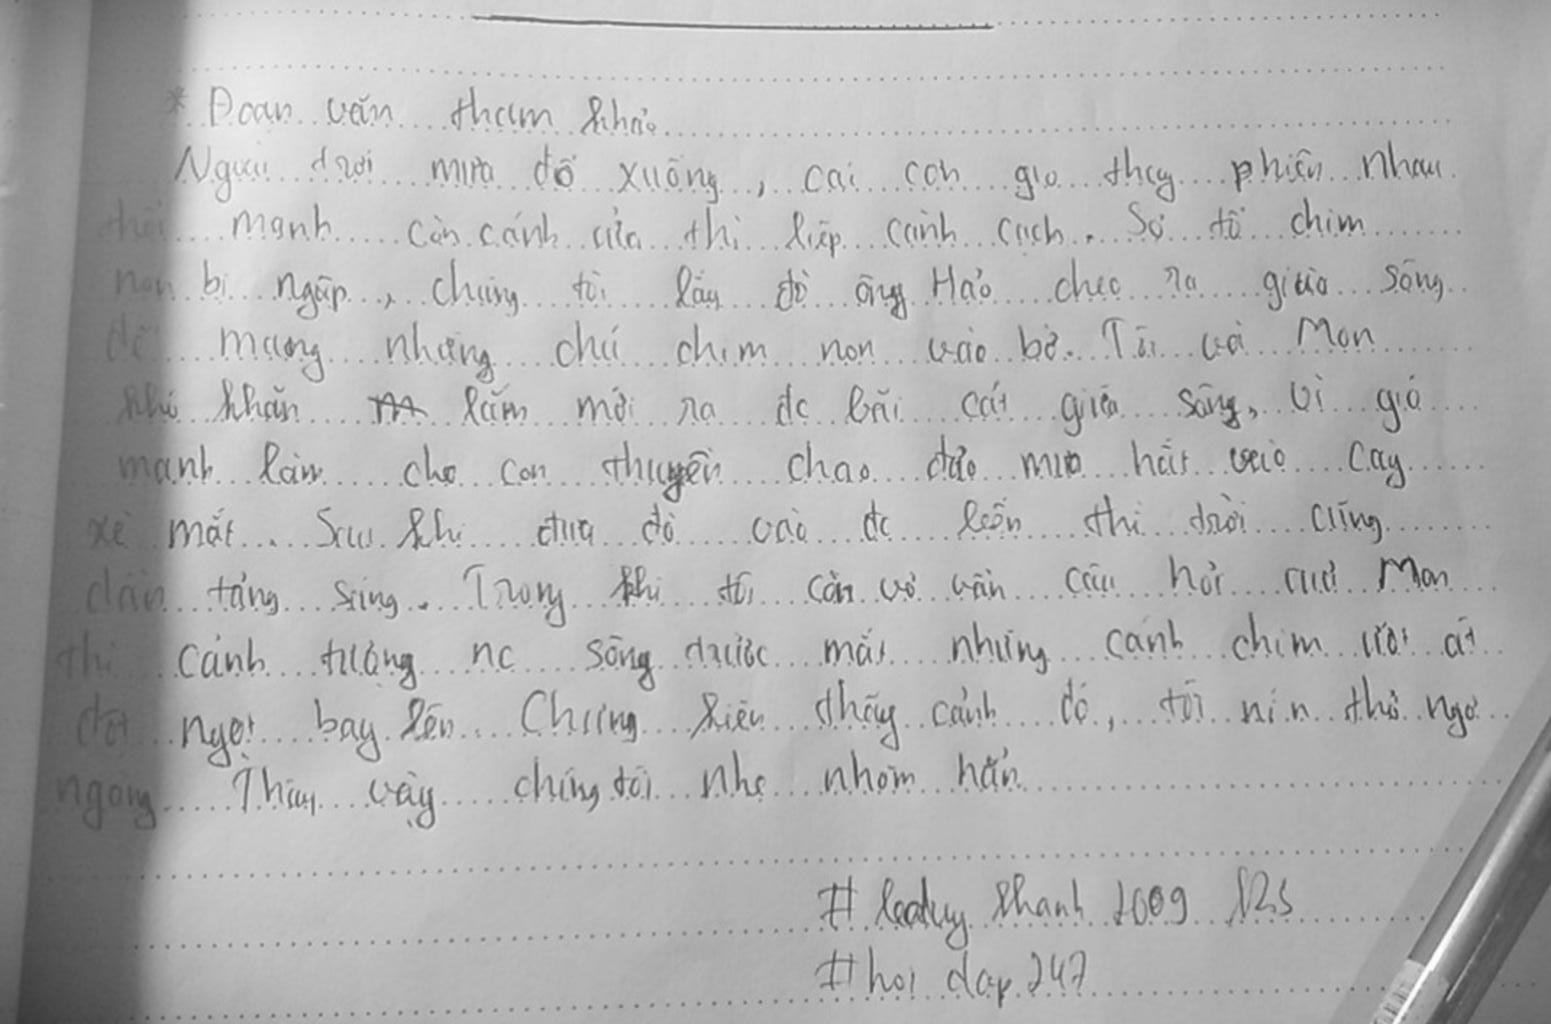 * Đoạn văn tham khảo
Ngoài trời mưa đổ xuống, cái cơn gió thay phiên nhau
thổi mạnh còn cánh cửa thì liếp cành cạch. Sợ tổ chim
non bị ngập, chúng tôi lấy đò ông Hảo chèo ra giữa sông
để mang những chú chim non vào bờ. Tôi với Mon
khó khăn lắm mới ra đc bãi cát giữa sông, vì gió
mạnh làm cho con thuyền chao đảo mưa hắt vào cay
xè mắt. Sau khi đưa đò vào đc bến thì trời cũng
dần tảng sáng. Trong khi tôi còn vò vần câu hỏi của Mon
thì cảnh tượng nc sông trước mắt những cánh chim ướt át
đột ngột bay lên. Chứng kiến thấy cảnh đó, tôi nín thở ngơ
ngóng. Thấy vậy chúng tôi nhẹ nhõm hẳn
# leduy khanh 2009
# hoi dap 247